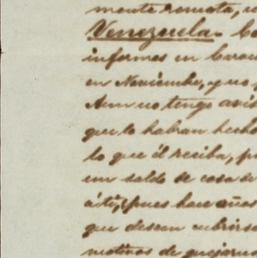 mente remota, u
Venezuela. Co
informes en Carac
en Noviembre, y no p
Aun no tengo avis
que lo habran hecho
lo que él reciba, p
un saldo de cosa de
á ti, pues hace años
que desean cubrirse
motivos de quejarse